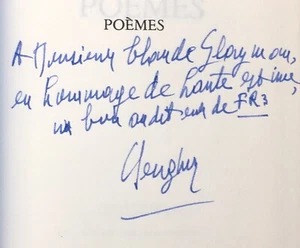 POÈMES
POÈMES
A Monsieur Claude Glayman,
en hommage de haute estime,
un bon auditeur de FR3
Senghor